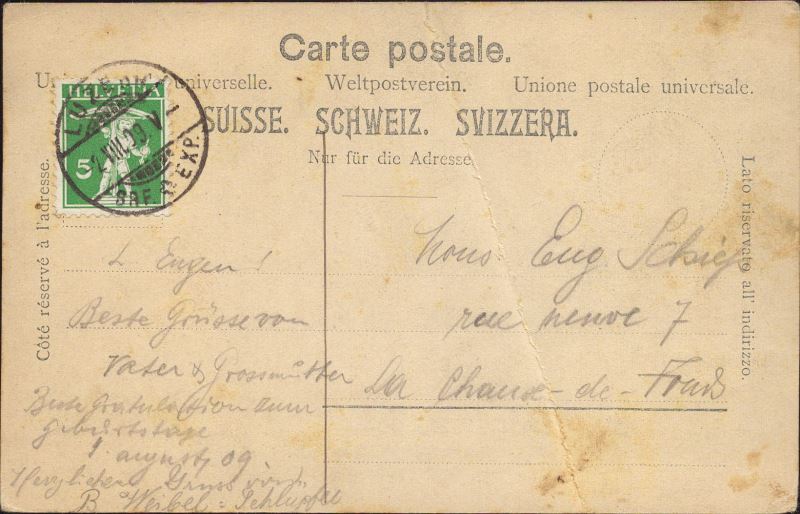 Carte postale.
Union postale universelle. Weltpostverein. Unione postale universale.
SUISSE. SCHWEIZ. SVIZZERA.
Nur für die Adresse
Côté réservé à l'adresse.
Lato riservato all' indirizzo.
HELVETIA
5
LUZERN 1
2.VIII.09 V
BRF. EXP.
L Eugen!
Beste Grüsse von
Vater & Grossmutter
Beste Gratulation zum
Geburtstage
1 august 09
Herzlichen Gruss von
B Weibel =
Mons Eug. Schiess
rue neuve 7
La Chaux-de-Fonds